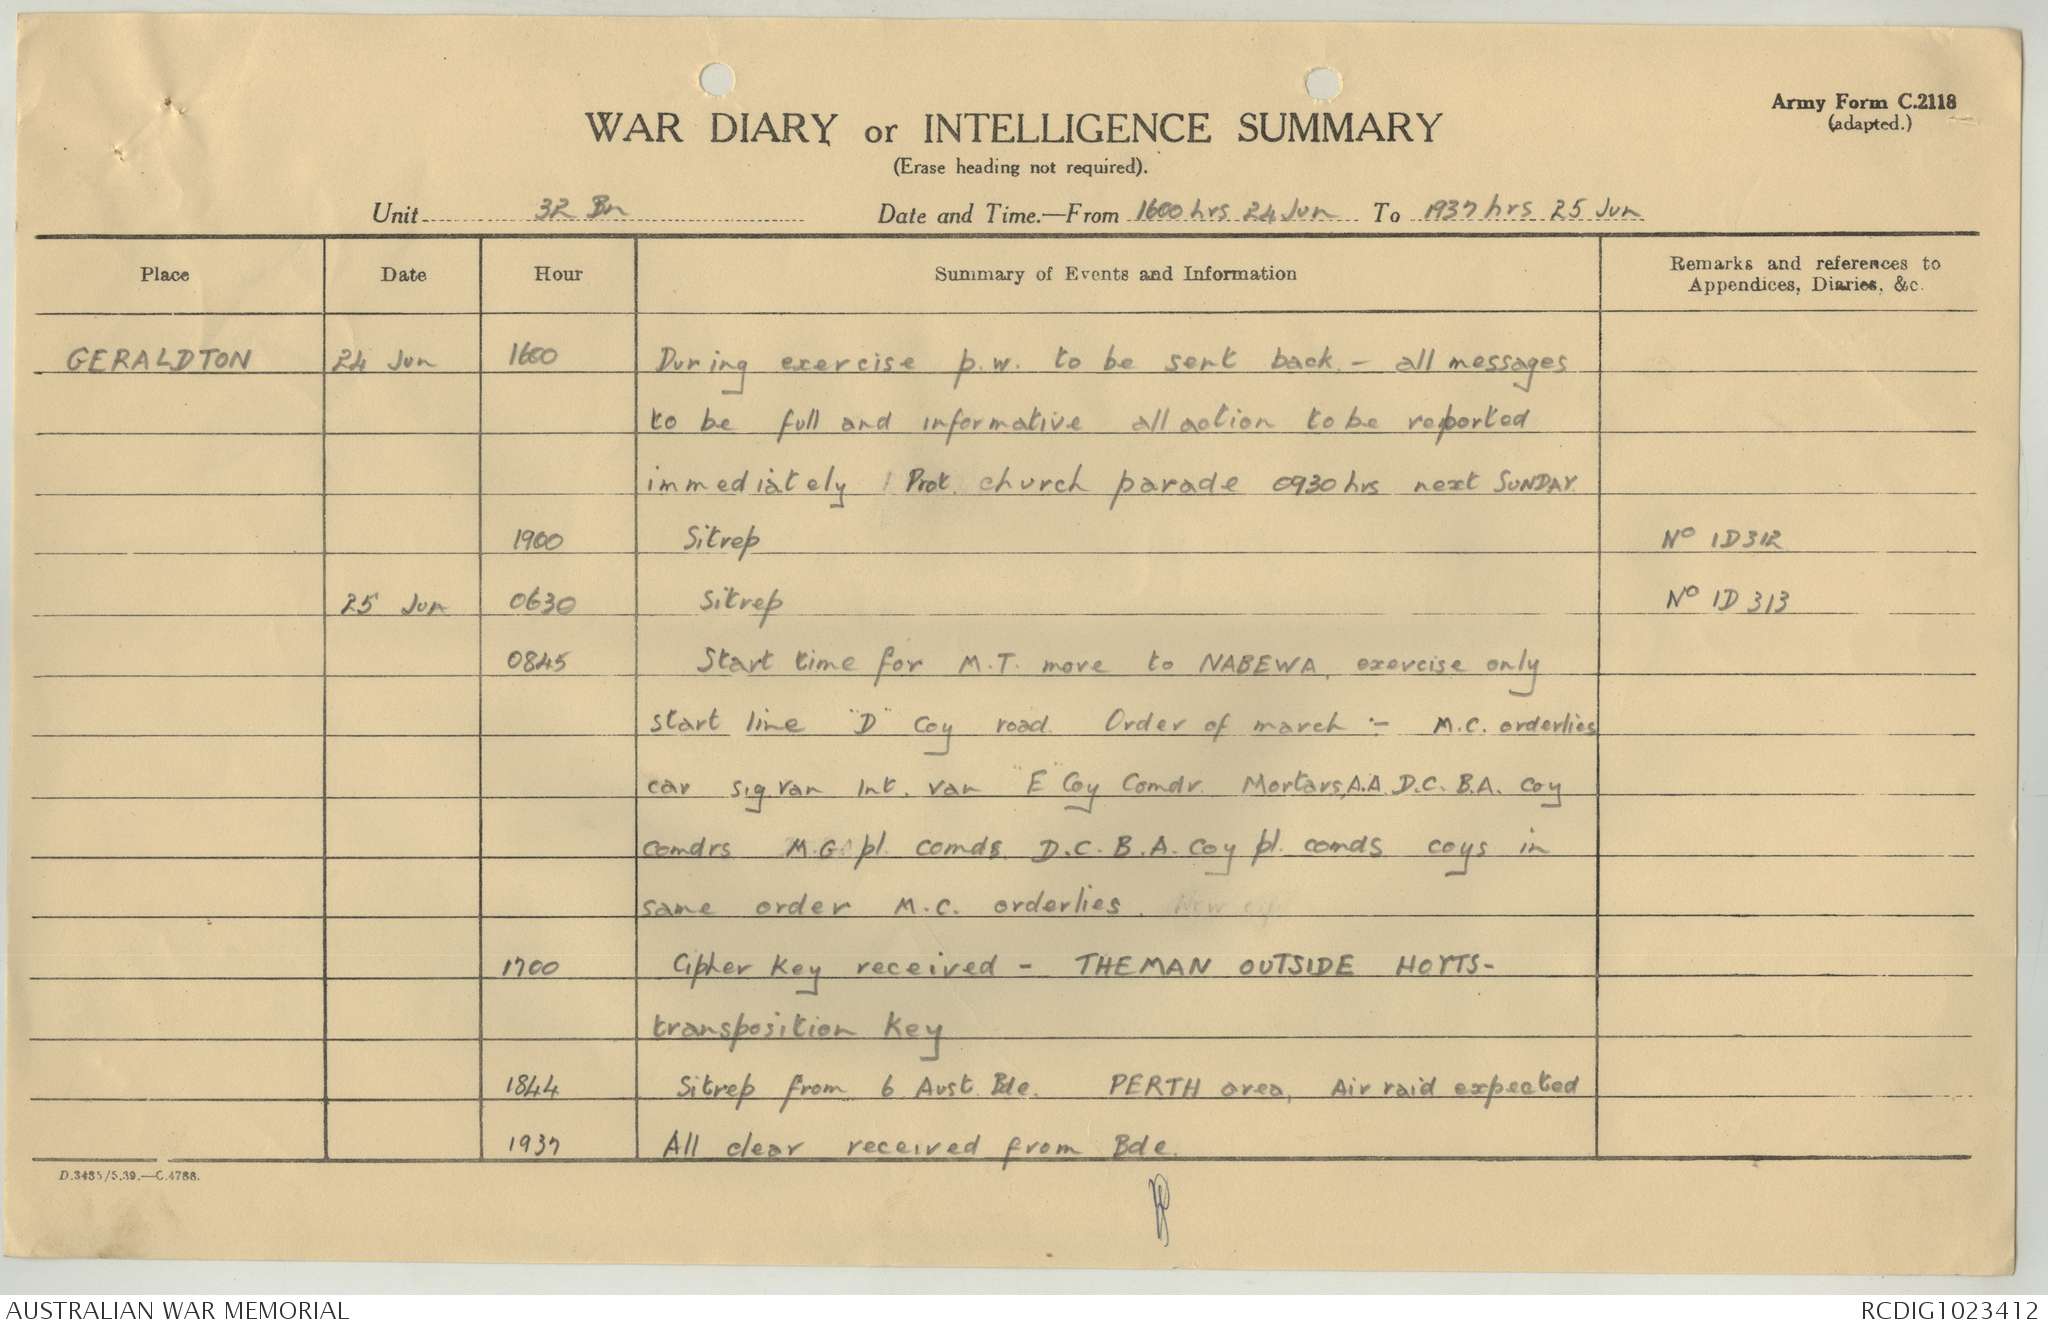 Army Form C.2118
(adapted.)
WAR DIARY or INTELLIGENCE SUMMARY
(Erase heading not required).
Unit 32 Bn Date and Time.—From 1600 hrs 24 Jun To 1937 hrs 25 Jun
Place Date Hour Summary of Events and Information Remarks and references to
Appendices, Diaries, &c.
GERALDTON 24 Jun 1600 During exercise p.w. to be sent back - all messages
to be full and informative all action to be reported
immediately Prot. church parade 0930 hrs next SUNDAY.
1900 Sitrep No 1D312
25 Jun 0630 Sitrep No 1D 313
0845 Start time for M.T. move to NABEWA, exercise only
start line "D" Coy road. Order of march :- M.C. orderlies
car sig. van Int. van "E" Coy Comdr. Mortars, A.A. D.C. B.A. coy
comdrs M.G. pl. comds. D.C. B.A. coy pl. comds coys in
same order M.C. orderlies. New
1700 Cipher Key received - THEMAN OUTSIDE HOYTS-
transposition Key
1844 Sitrep from 6 Aust. Bde. PERTH area, Air raid expected
1937 All clear received from Bde.
D.3485/5.39.—C.4788.
AUSTRALIAN WAR MEMORIAL RCDIG1023412